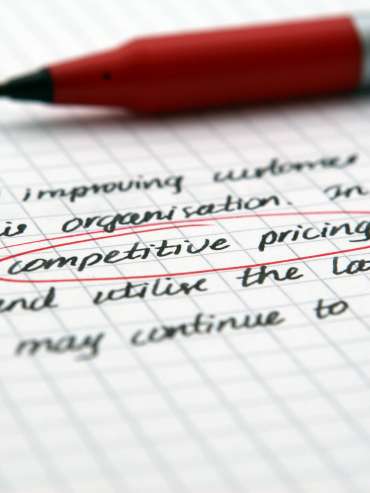 improving customer
is organisation. In
competitive pricing
end utilise the la
may continue to